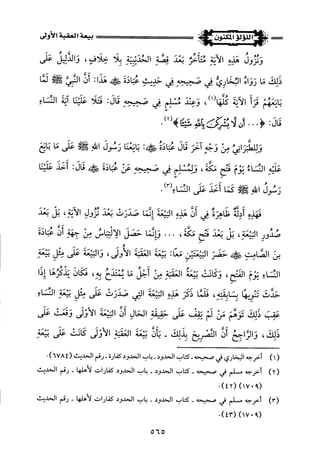 اللؤلؤ المكنون
بيعة العقبة الأولى
وَنُزُولُ هَذِهِ الآيَةِ مُتَأَخِّرٌ بَعْدَ قِصَّةِ الحُدَيْبِيَةِ بِلَا خِلَافٍ، وَالدَّلِيلُ عَلَى
ذَلِكَ مَا رَوَاهُ البُخَارِيُّ فِي صَحِيحِهِ فِي حَدِيثِ عُبَادَةَ ﷺ هَذَا: أَنَّ النَّبِيَّ ﷺ لَمَّا
بَايَعَهُمْ قَرَأَ الآيَةَ كُلَّهَا(١)، وَعِنْدَ مُسْلِمٍ فِي صَحِيحِهِ قَالَ: فَتَلَا عَلَيْنَا آيَةَ النِّسَاءِ
قَالَ: ﴿... أَن لَّا يُشْرِكْنَ بِاللَّهِ شَيْئًا﴾(٢).
وَلِلطَّبَرَانِيِّ مِنْ وَجْهٍ آخَرَ قَالَ عُبَادَةُ: بَايَعْنَا رَسُولَ اللهِ ﷺ عَلَى مَا بَايَعَ
عَلَيْهِ النِّسَاءُ يَوْمَ فَتْحِ مَكَّةَ، وَلِمُسْلِمٍ فِي صَحِيحِهِ عَنْ عُبَادَةَ قَالَ: أَخَذَ عَلَيْنَا
رَسُولُ اللهِ ﷺ كَمَا أَخَذَ عَلَى النِّسَاءِ(٣).
فَهَذِهِ أَدِلَّةٌ ظَاهِرَةٌ فِي أَنَّ هَذِهِ البَيْعَةَ إِنَّمَا صَدَرَتْ بَعْدَ نُزُولِ الآيَةِ، بَلْ بَعْدَ
صُدُورِ البَيْعَةِ، بَلْ بَعْدَ فَتْحِ مَكَّةَ، ... وَإِنَّمَا حَصَلَ الِالْتِبَاسُ مِنْ جِهَةِ أَنَّ عُبَادَةَ
بنَ الصَّامِتِ حَضَرَ البَيْعَتَيْنِ مَعًا: بَيْعَةَ العَقَبَةِ الأُولَى، وَالبَيْعَةَ عَلَى مِثْلِ بَيْعَةِ
النِّسَاءِ يَوْمَ الفَتْحِ، وَكَانَتْ بَيْعَةُ العَقَبَةِ مِنْ أَجَلِّ مَا يُتَمَدَّحُ بِهِ، فَكَانَ يَذْكُرُهَا إِذَا
حَدَّثَ تَنْوِيهًا بِسَابِقَتِهِ، فَلَمَّا ذَكَرَ هَذِهِ البَيْعَةَ التِي صَدَرَتْ عَلَى مِثْلِ بَيْعَةِ النِّسَاءِ
عَقِبَ ذَلِكَ تَوَهَّمَ مَنْ لَمْ يَقِفْ عَلَى حَقِيقَةِ الحَالِ أَنَّ البَيْعَةَ الأُولَى وَقَعَتْ عَلَى
ذَلِكَ، وَالرَّاجِحُ أَنَّ التَّصْرِيحَ بِذَلِكَ - بِأَنَّ بَيْعَةَ العَقَبَةِ الأُولَى كَانَتْ عَلَى بَيْعَةِ
(١) أخرجه البخاري في صحيحه - كتاب الحدود - باب الحدود كفارة - رقم الحديث (٦٧٨٤).
(٢) أخرجه مسلم في صحيحه - كتاب الحدود - باب الحدود كفارات لأهلها - رقم الحديث
(١٧٠٩) (٤٢).
(٣) أخرجه مسلم في صحيحه - كتاب الحدود - باب الحدود كفارات لأهلها - رقم الحديث
(١٧٠٩) (٤٣).
٥٦٥